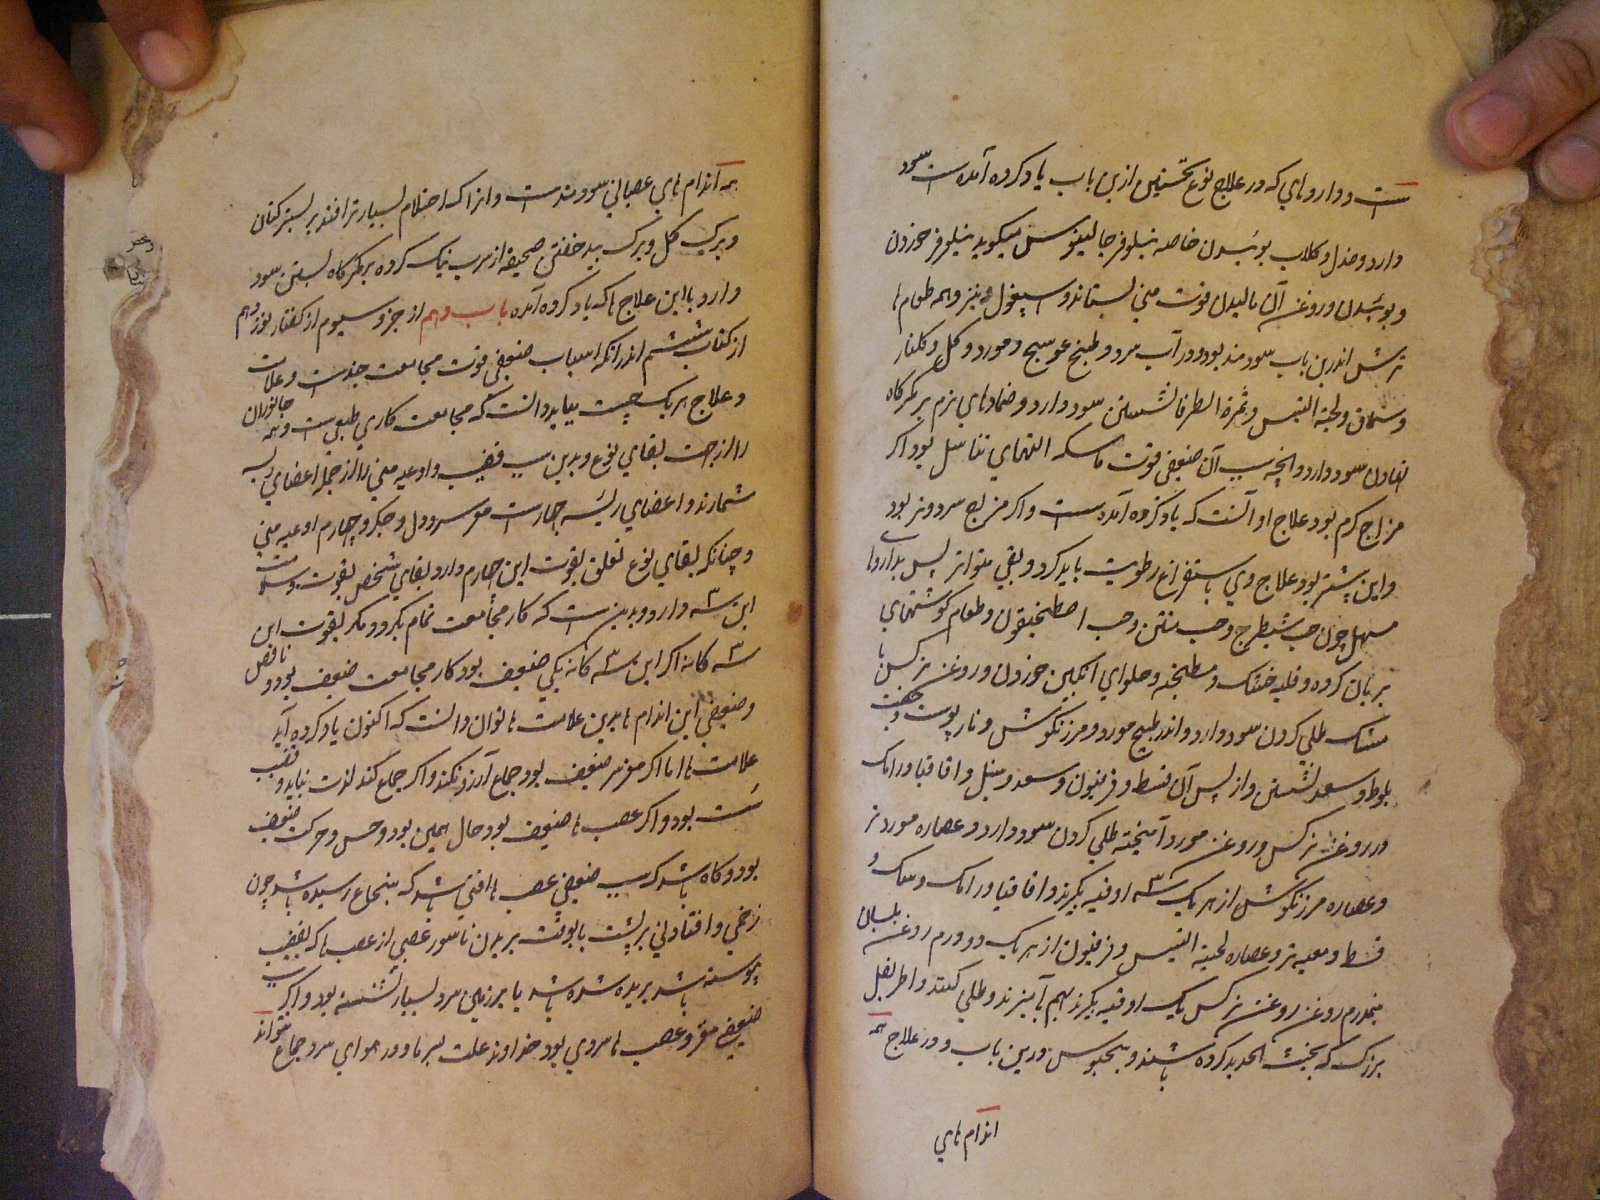 است و داروهای که در علاج نوع نخستین ازین باب یاد کرده آمدست سود
دارد و صندل و کلاب بوئیدن خاصه نیلوفر جالینوس میکوید نیلوفر خوردن
و بوئیدن و روغن آن مالیدن قوت منی بستاند و اسپغول و بنیز و همه طعام ها
ترش اندرین باب سودمند بود و در آب سرد و طبیخ عوسج و مورد و کل و کلنار
و سماق و لحیة التیس و ثمرة الطرفا نشستن سود دارد و ضمادهای نرم بر کمرکاه
نهادن سود دارد و انچه سبب آن ضعیفی قوت ماسکه التهای تناسل بود اکر
مزاج کرم بود علاج او آنست که یاد کرده آمده ست و اکر مزاج سرد و تر بود
و این بیشتر بود علاج وی باستفراغ رطوبت باید کرد و بقی متواتر پس بداروها
مسهل چون حب شیطرج و حب منتن و حب اصطمخیقون و طعام کوشتهای
بریان کرده و قلیه خشک و مطنجنه و حلوای انکبین خوردن و روغن نرکس با
مشک طلی کردن سود دارد و اندر طبیخ مورد و مرزنکوش و نار پوست و جفت
بلوط و سعد نشستن و از پس آن قسط و فرفیون و سعد و سنبل و اقاقیا و رامک
در روغن نرکس و روغن مورد آمیخته طلی کردن سود دارد و عصاره مورد تر
و عصاره مرزنکوش از هر یک سه اوقیه بکیرند و اقاقیا و رامک و سک و
قسط و میعه تر و عصاره لحیة التیس و فرفیون از هر یک دو درم روغن بلسان
پنجدرم روغن نرکس یک اوقیه بکیرند بهم آمیزند و طلی کنند و اطریفل
بزرک که بخبث الحدید کرده باشند و درین باب و در علاج همه
اندام های
همه اندام های عصبانی سودمندست و انرا که احتلام بسیار تر افتد بر بستر کتان
و برک کل و برک بید خفتن و صحیفه از سرب تنک کرده بر کمرکاه بستن سود
دارد با این علاج ها که یاد کرده آمده باب دهم از جزو سیوم از کفتار نوزدهم
از کتاب ششم اندر انکه اسباب ضعیفی قوت مجامعت چندست و علامت
و علاج هر یک چیست بباید دانست که مجامعت کاری طبیعی ست و همه جانوران
را از جهت بقای نوع و بدین سبب قضیب و اوعیه منی را از جمله اعضای رئیسه
شمارند و اعضای رئیسه چهارست مغز سر و دل و جکر و چهارم اوعیه منی
و چنانکه بقای نوع تعلق بقوت این چهارم دارد بقای شخص بقوت و سلامت
این سه دارد و بدین ست که کار مجامعت تمام نکردد مکر بقوت این
سه کانه اکر این سه کانه یکی ضعیف بود کار مجامعت ضعیف بود و ناقص
و ضعیفی این اندام ها بدین علامت ها توان دانست که اکنون یاد کرده آید
علامت ها اما اکر مغز سر ضعیف بود جماع آرزو نکند و اکر جماع کند لذت نیابد و قضیب
سست بود و اکر عصب ها ضعیف بود حال همین بود و حس و حرکت ضعیف
بود و کاه باشد که سبب ضعیفی عصب ها آفتی باشد که بنخاع رسیده باشد چون
زخمی و افتادنی بر پشت یا بوقت بریدن ناسور عصبی از عصب ها که بقضیب
پیوسته باشد بریده شده باشد یا بر زمین سرد بسیار نشسته بود و اکر سبب
ضعیفی مغز و عصب ها سردی بود خداوند علت بسرما و در هوای سرد جماع نتواند